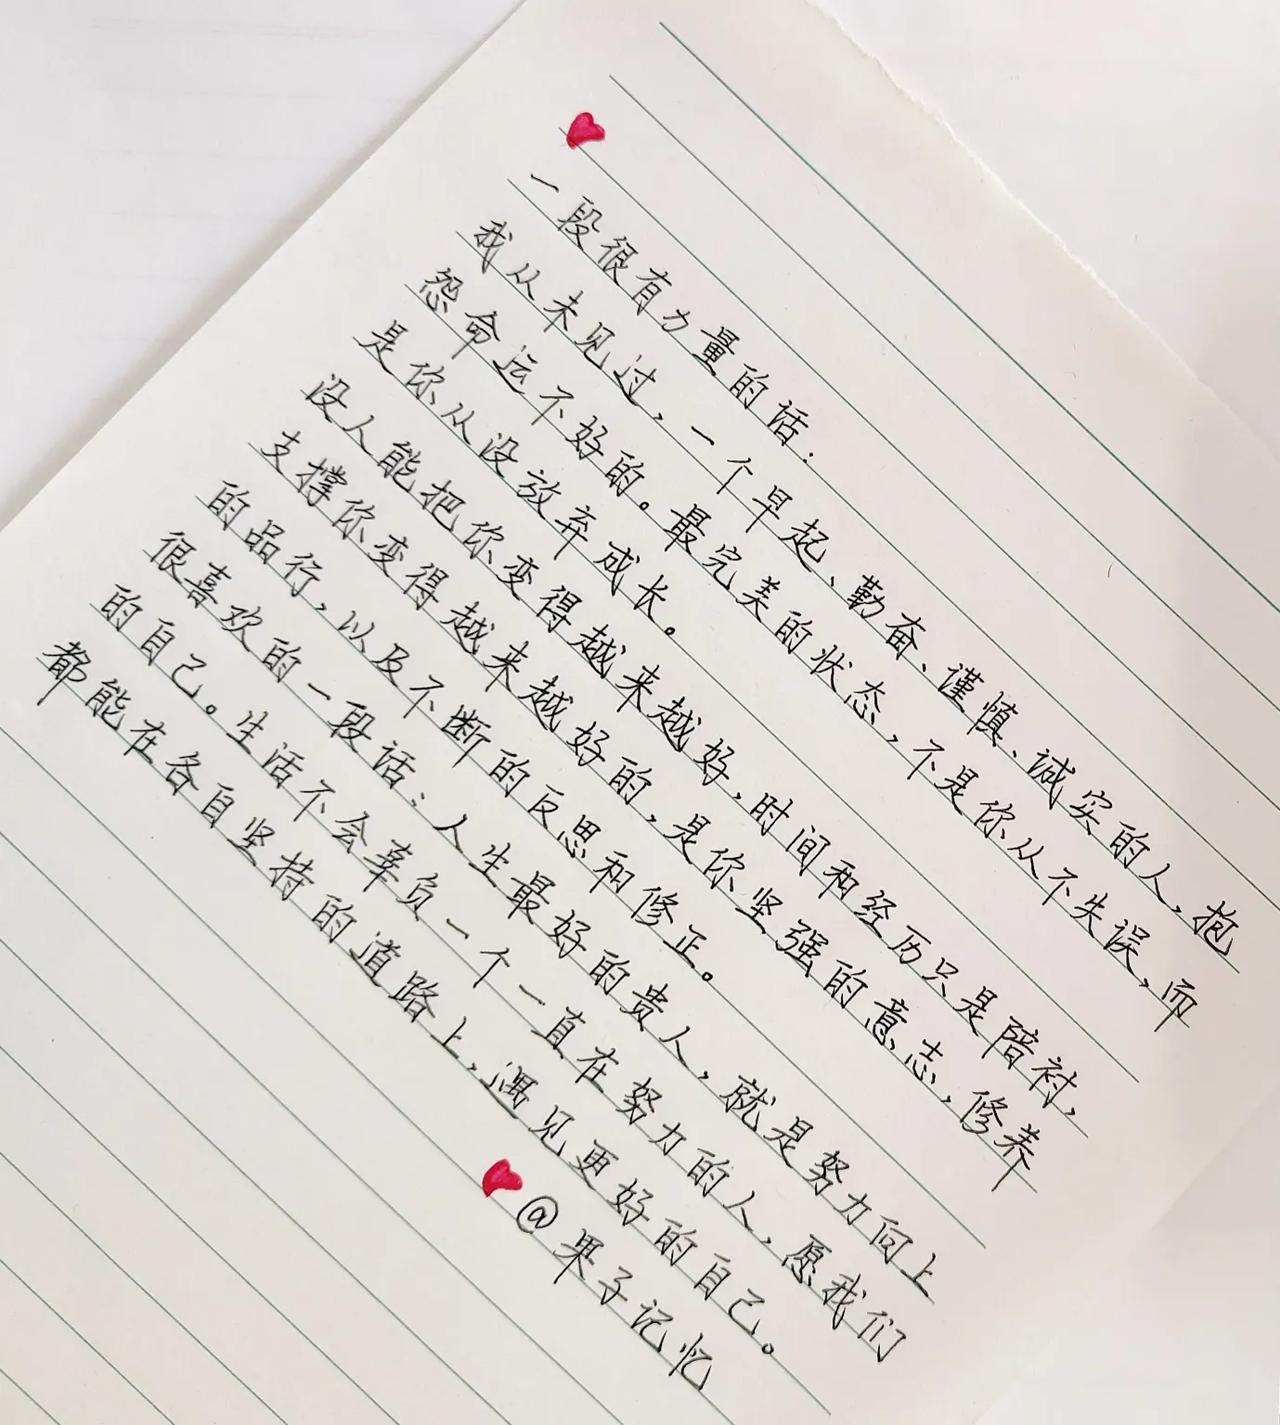 一段很有力量的话:
我从未见过,一个早起、勤奋、谨慎、诚实的人,抱
怨命运不好的。最完美的状态,不是你从不失误,而
是你从没放弃成长。
没人能把你变得越来越好,时间和经历只是陪衬,
支撑你变得越来越好的,是你坚强的意志,修养
的品行,以及不断的反思和修正。
很喜欢的一段话:人生最好的贵人,就是努力向上
的自己。生活不会辜负一个一直在努力的人,愿我们
都能在各自坚持的道路上,遇见更好的自己。
@果子记忆